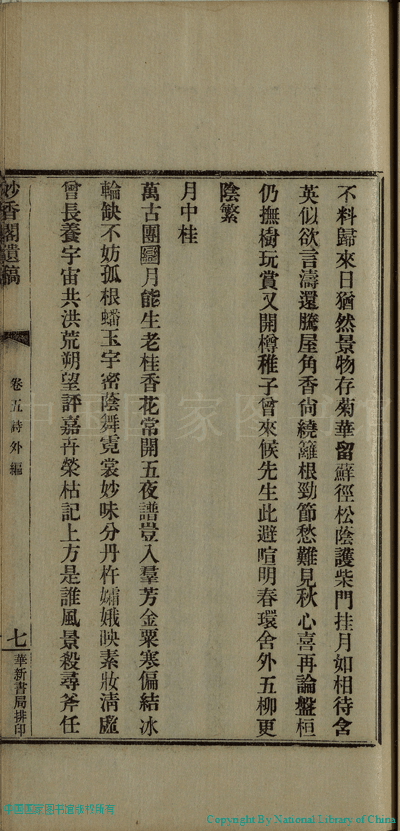 不料歸來日猶然景物存菊華留蘚徑松陰護柴門挂月如相待含
英似欲言濤還騰屋角香尙繞籬根勁節愁難見秋心喜再論盤桓
仍撫樹玩賞又開樽稚子曾來候先生此避喧明春環舍外五柳更
陰繁
月中桂
萬古團圞月能生老桂香花常開五夜譜豈入羣芳金粟寒偏結冰
輪缺不妨孤根蟠玉宇密陰舞霓裳妙味分丹杵孀娥映素妝淸虛
曾長養宇宙共洪荒朔望評嘉卉榮枯記上方是誰風景殺尋斧任
妙香閣遺稿
卷五詩外編
七
華新書局排印
中国国家图书馆版权所有
Copyright By National Library of China